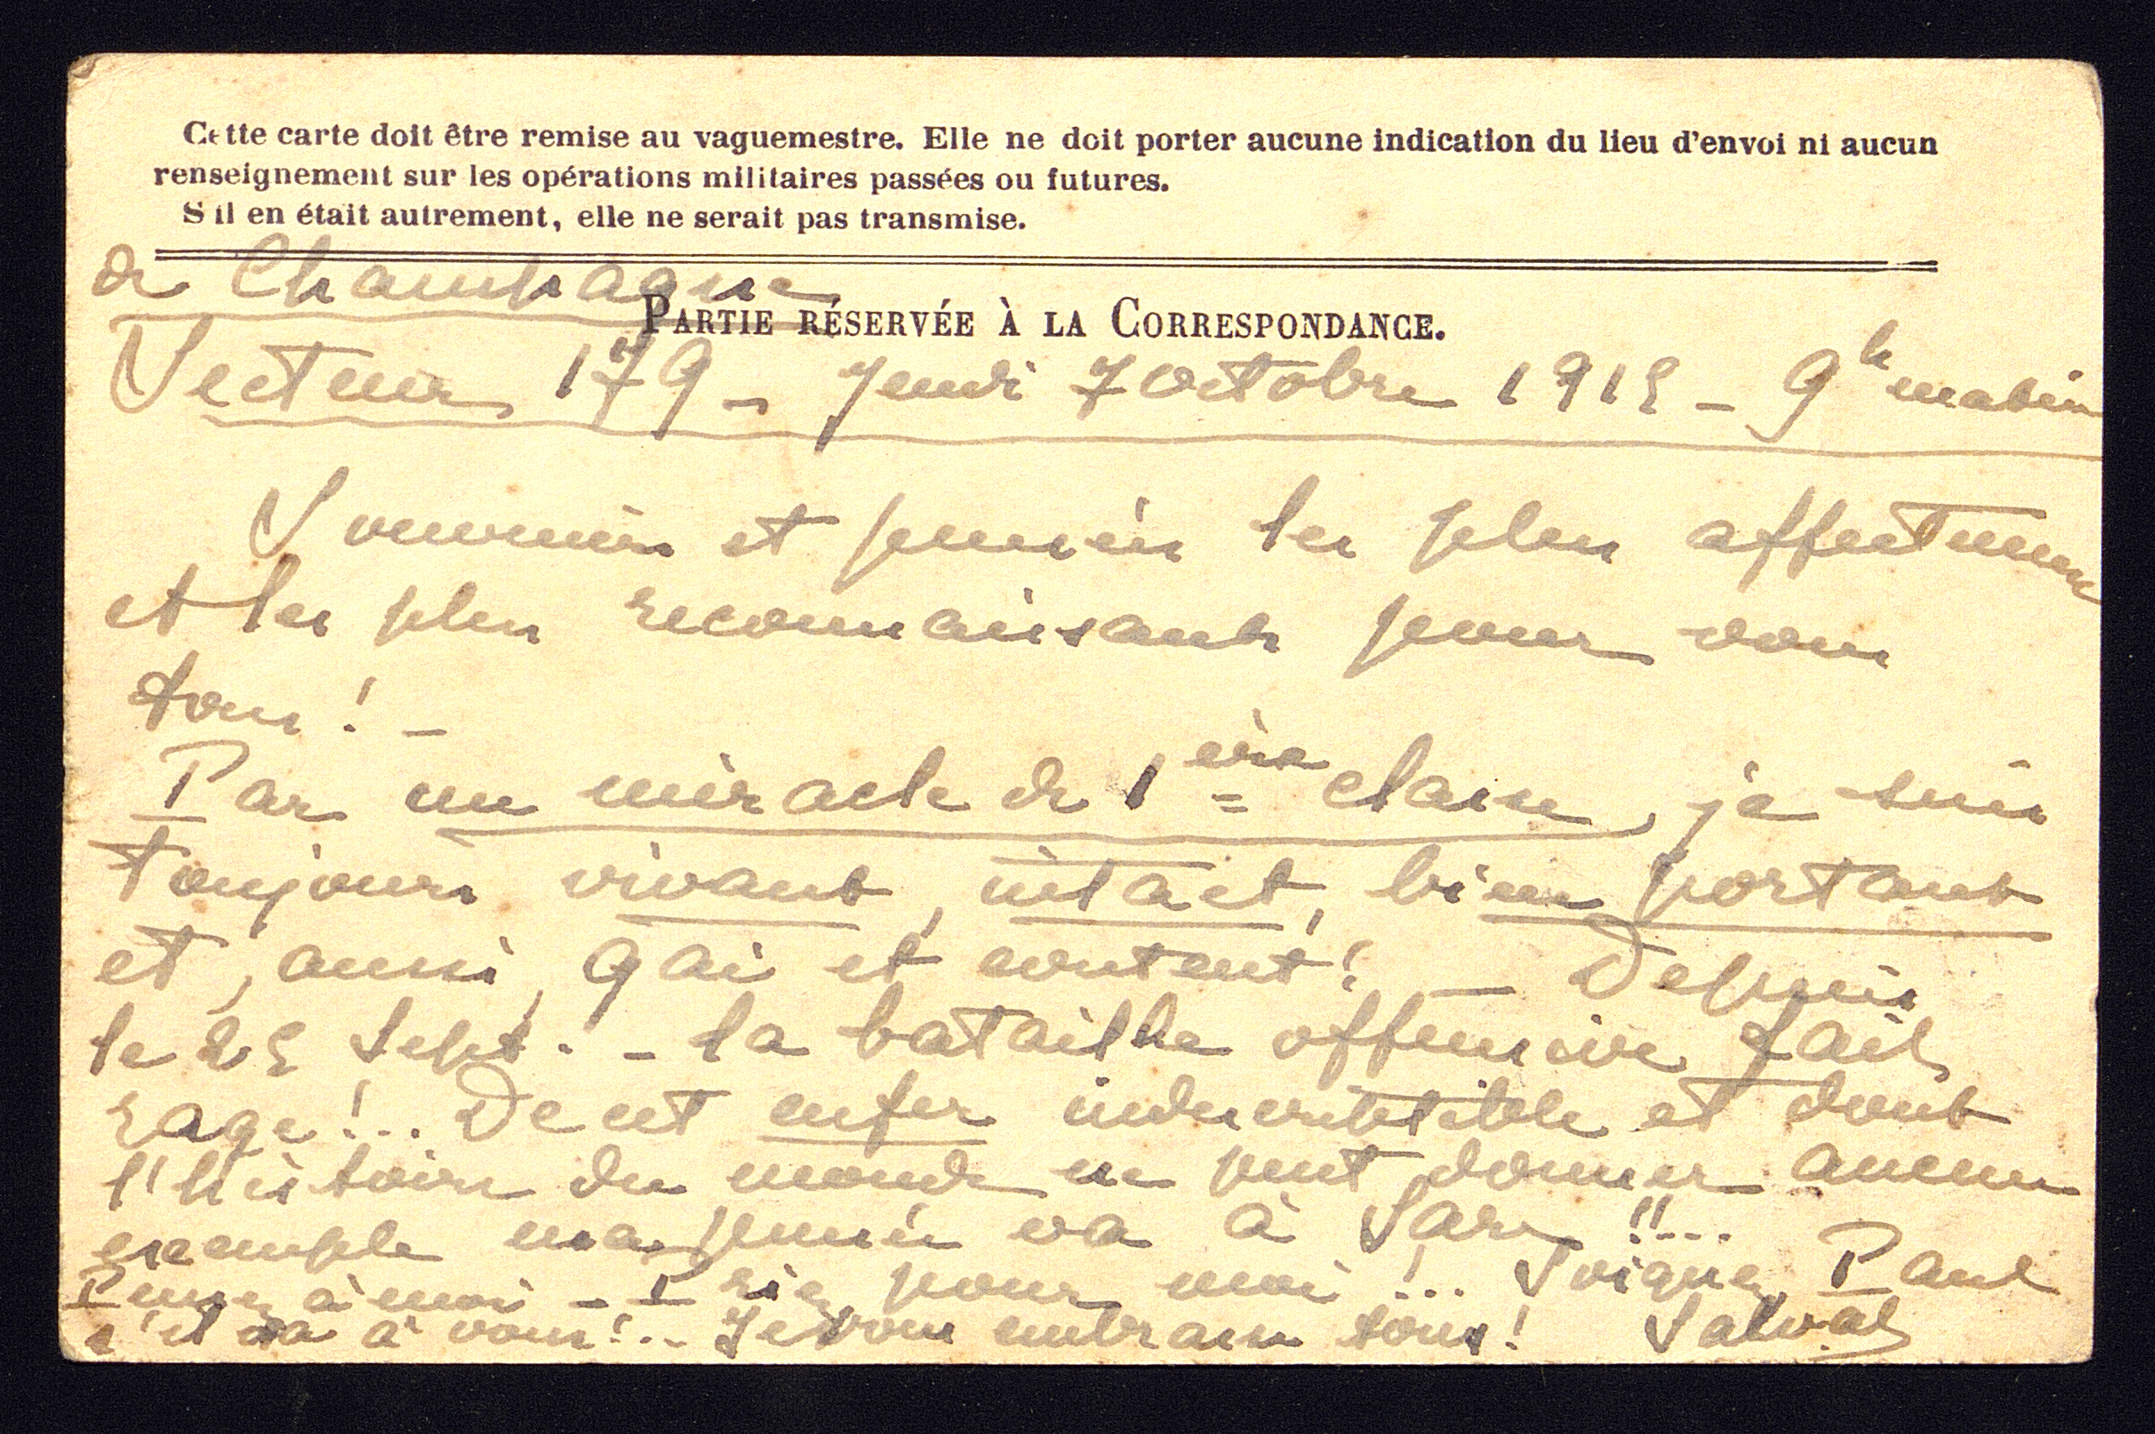 Cette carte doit être remise au vaguemestre. Elle ne doit porter aucune indication du lieu d'envoi ni aucun
renseignement sur les opérations militaires passées ou futures.
S'il en était autrement, elle ne serait pas transmise.
de Champagne
PARTIE RÉSERVÉE À LA CORRESPONDANCE.
Secteur 179 - Jeudi 7 octobre 1915 - 9h matin
Souvenirs et pensées les plus affectueux
et les plus reconnaissants pour vous
tous ! -
Par un miracle de 1ère classe, je suis
toujours vivant, intact, bien portant
et, aussi, gai et content ! - Depuis
le 25 Sept. - la bataille offensive fait
rage !.. De cet enfer indescriptible et dont
l'histoire du monde ne peut donner aucun
exemple ma pensée va à Sare !!...
Pensez à moi - Priez pour moi !... Soignez Paul
s'il va à vous !.. Je vous embrasse tous !